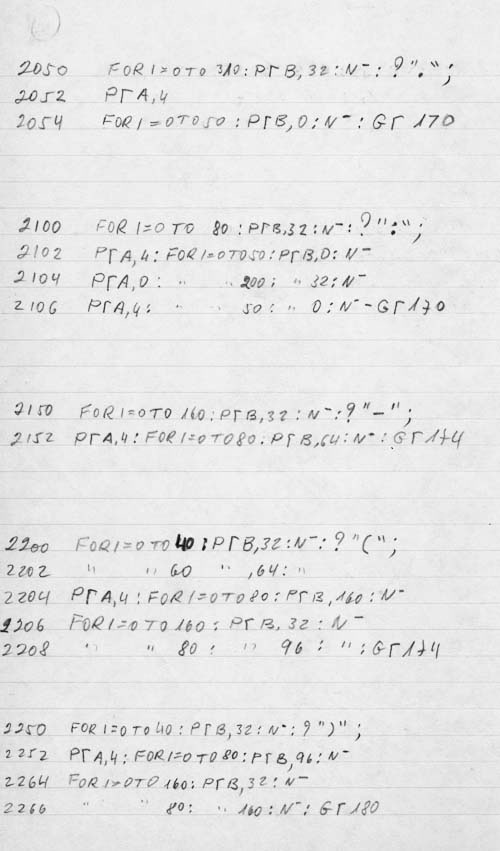 2050 FOR I=0 TO 310:PГB,32:N⁻:?".";
2052 PГA,4
2054 FOR I=0 TO 50:PГB,0:N⁻:GГ170
2100 FOR I=0 TO 80:PГB,32:N⁻:?":";
2102 PГA,4:FOR I=0 TO 50:PГB,0:N⁻
2104 PГA,0: " " 200: " 32:N⁻
2106 PГA,4: " " 50: " 0:N⁻GГ170
2150 FOR I=0 TO 160:PГB,32:N⁻:?"–";
2152 PГA,4:FOR I=0 TO 80:PГB,64:N⁻:GГ174
2200 FOR I=0 TO 40:PГB,32:N⁻:?"(";
2202 " " 60 " ,64: "
2204 PГA,4:FOR I=0 TO 80:PГB,160:N⁻
2206 FOR I=0 TO 160:PГB,32:N⁻
2208 " " 80: " 96: ":GГ174
2250 FOR I=0 TO 40:PГB,32:N⁻:?")";
2252 PГA,4:FOR I=0 TO 80:PГB,96:N⁻
2264 FOR I=0 TO 160:PГB,32:N⁻
2266 " " 80: " 160:N⁻:GГ180